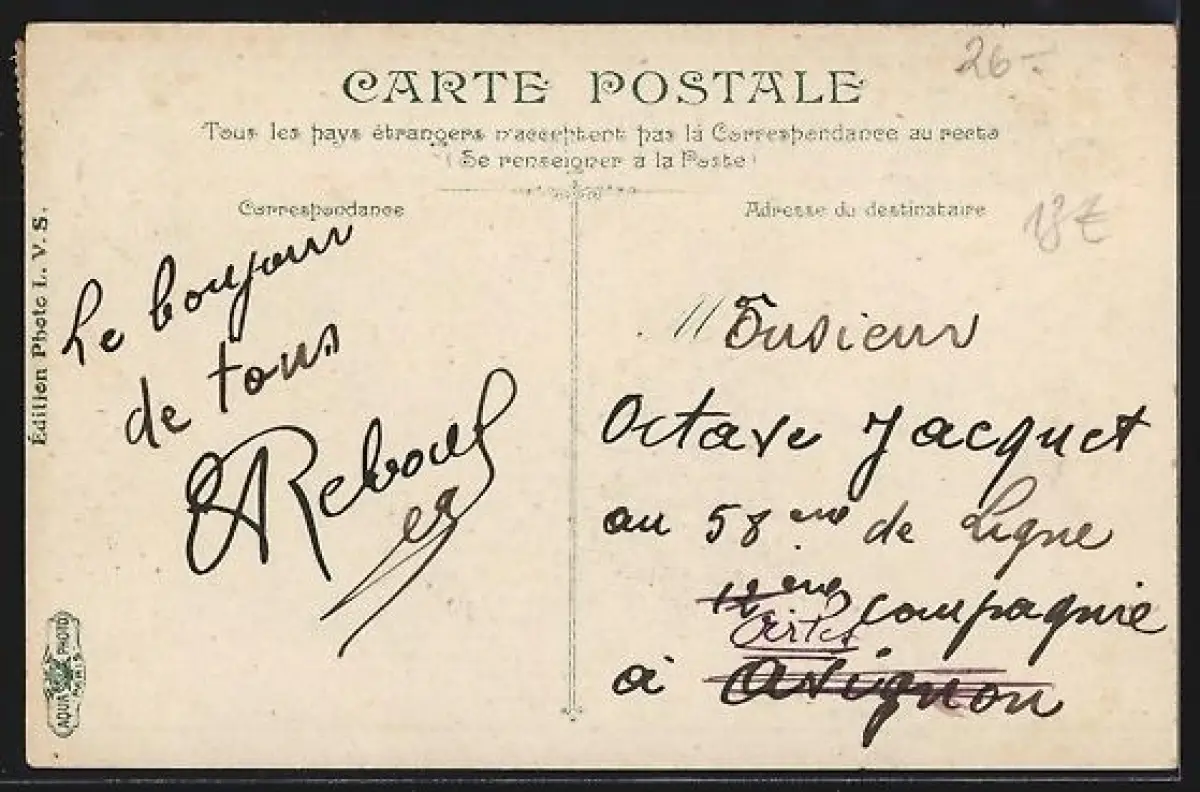 26-
CARTE POSTALE
Tous les pays étrangers n'acceptent pas la Correspondance au recto
(Se renseigner à la Poste)
Correspondance
Le bonjour
de tous
Reboul
Adresse du destinataire
13€
Monsieur
Octave Jacquet
au 58 eme de Ligne
12 eme compagnie
à Avignon
Édition Photo L. V. S.
AQUA PHOTO
PARIS